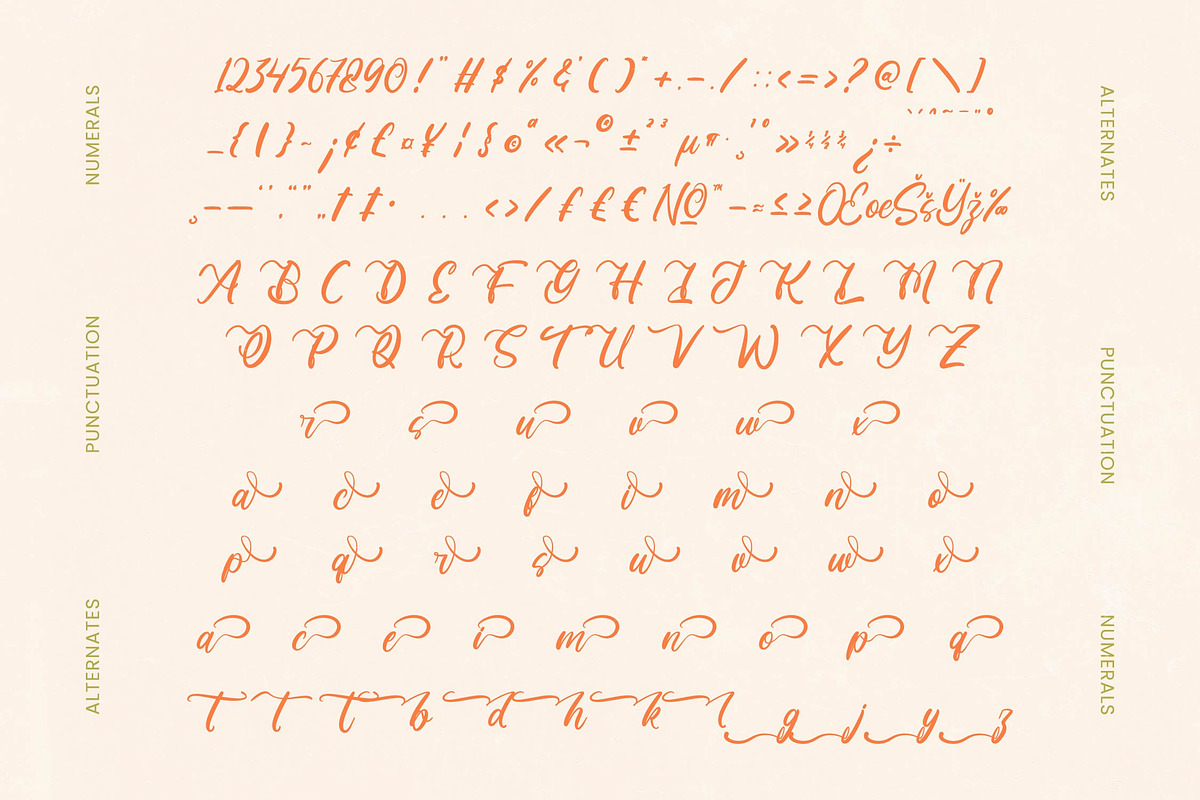 NUMERALS
PUNCTUATION
ALTERNATES
1234567890!"#$%&'()*+,-./:;<=>?@[\]
_{|}~¡¢£¤¥¦§©ª«¬®±²³µ¶·¸¹º»¼½¾¿÷
‚–—‘’“”„†‡•...‹›⁄ƒ₤€№™−≈≤≥ŒœŠšŸž‰
A B C D E F G H I J K L M N
O P Q R S T U V W X Y Z
r s u v w x
a c e f i m n o
p q r s u v w x
a c e i m n o p q
t t t b d h k l g j y z
ALTERNATES
PUNCTUATION
NUMERALS